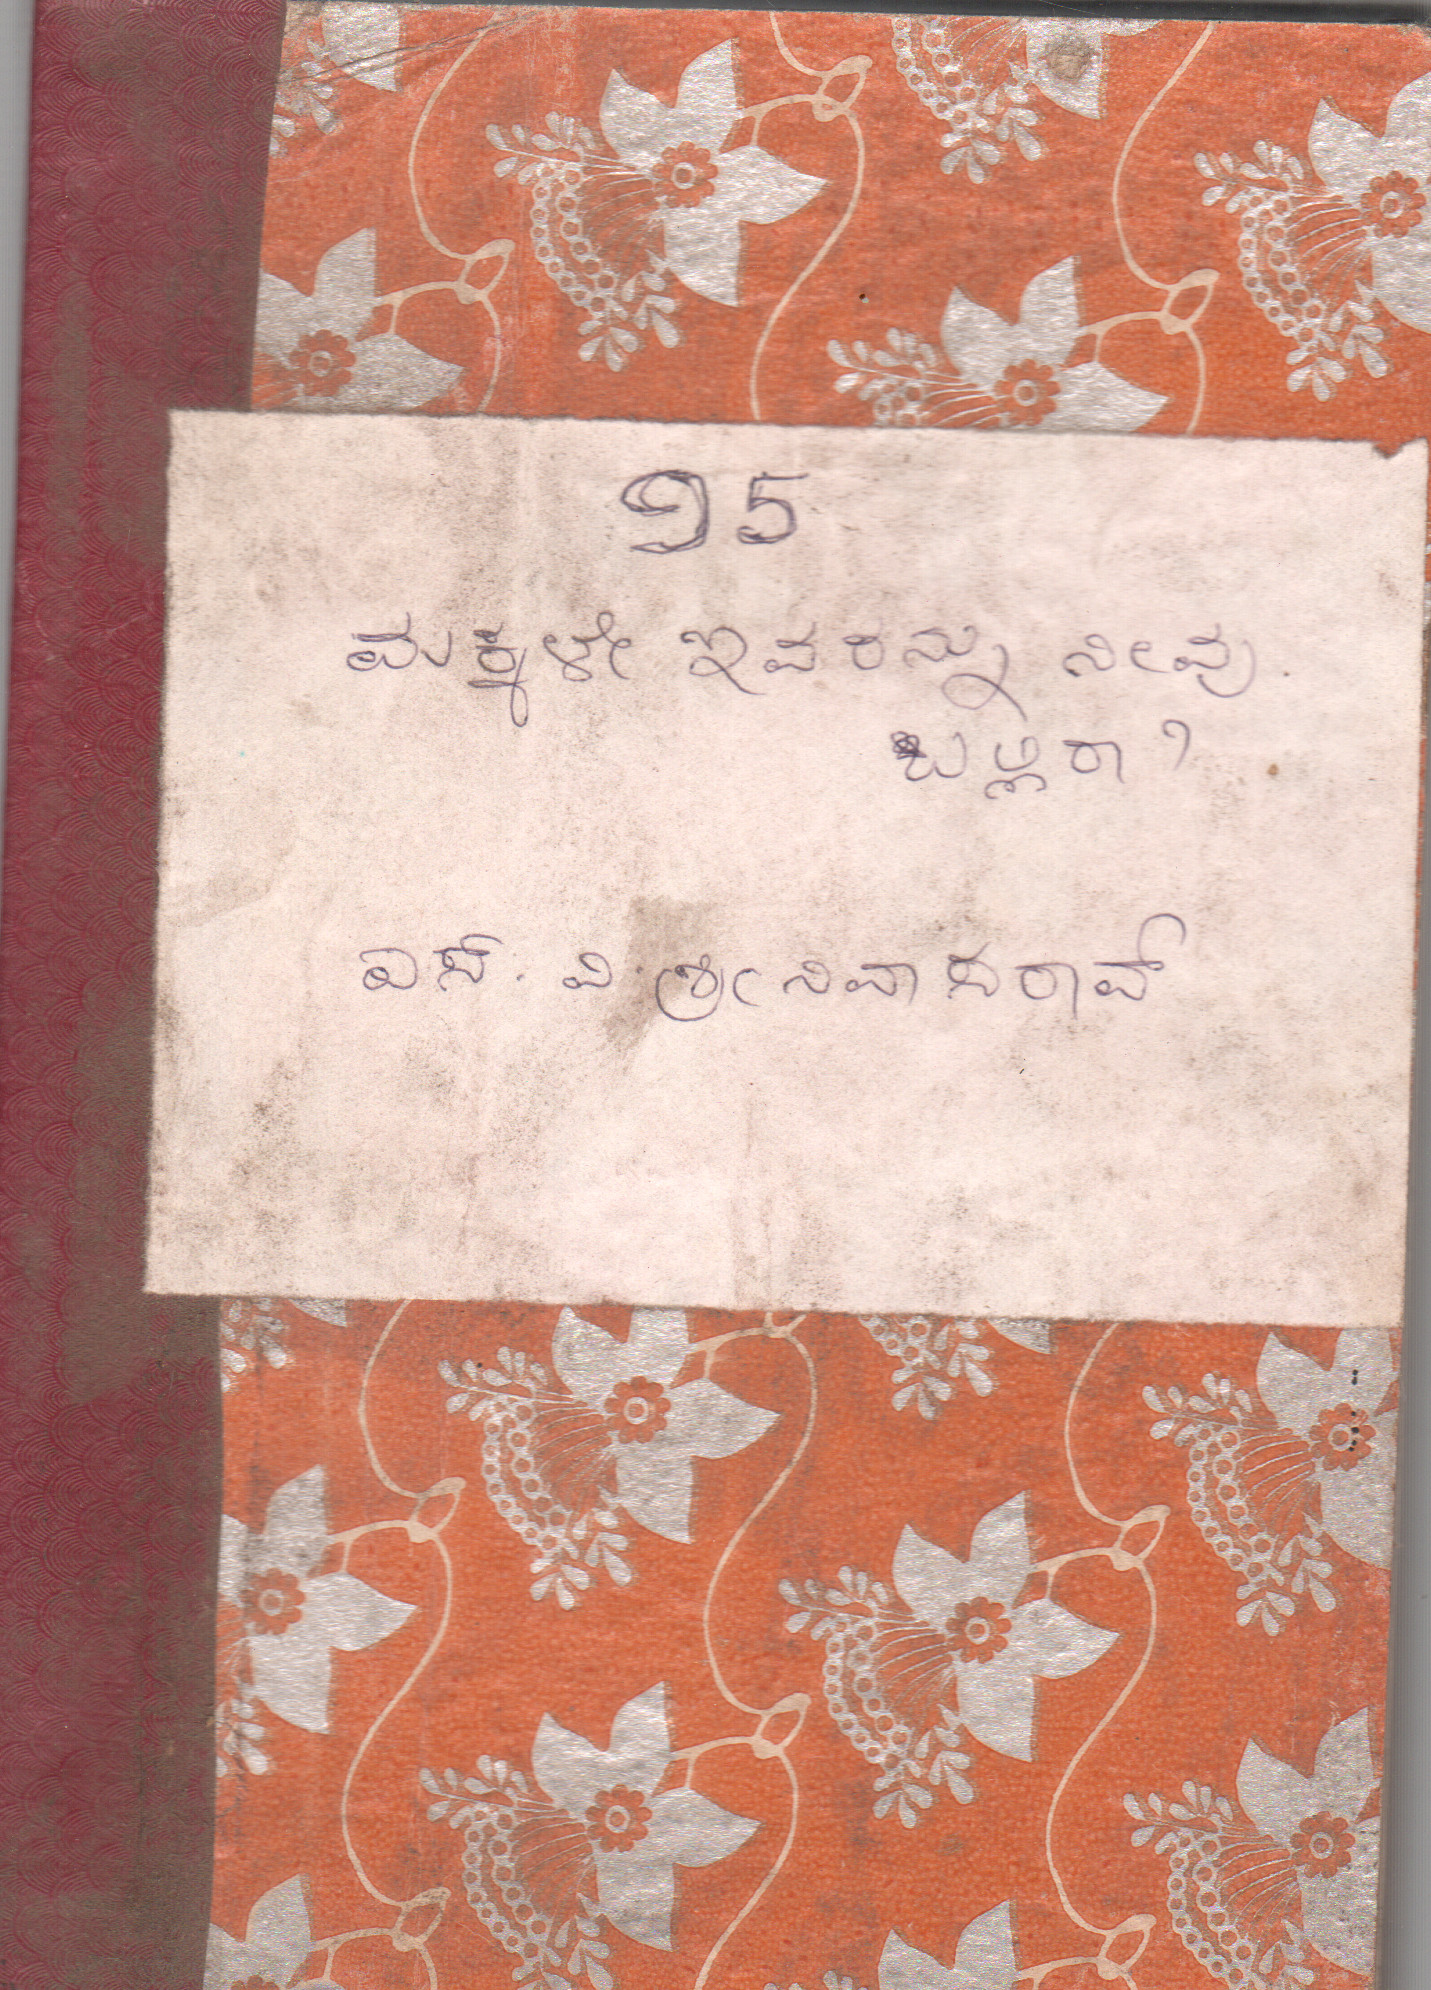 95
ಮಕ್ಕಳೇ ಇವರನ್ನು ನೀವು
ಬಲ್ಲಿರಾ?
ಎಸ್. ವಿ. ಶ್ರೀನಿವಾಸರಾವ್